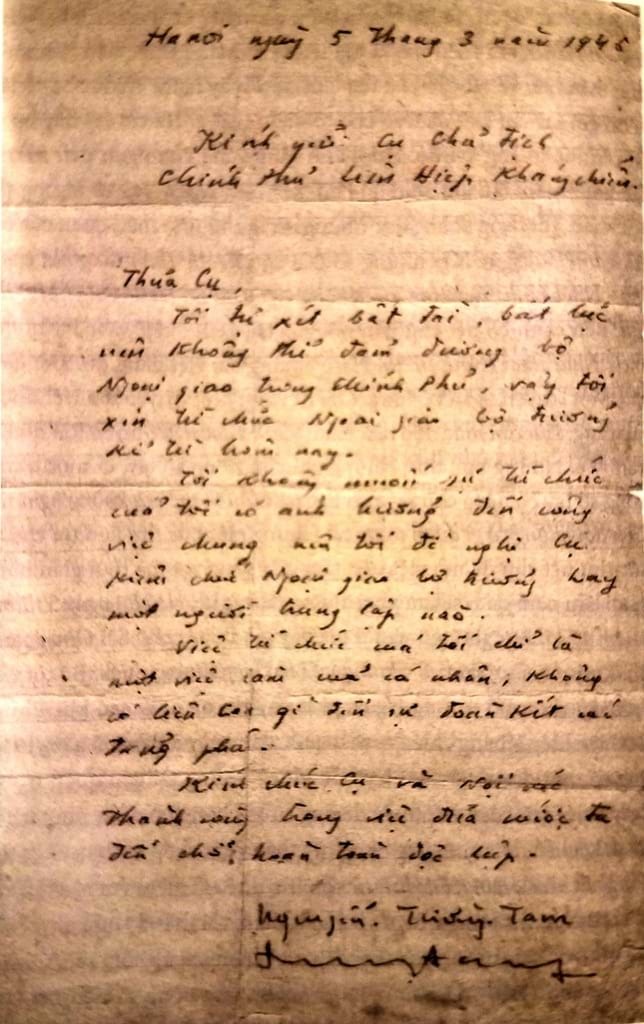 Hanoi ngày 5 tháng 3 năm 1946
Kính gửi Cụ Chủ tịch
Chính phủ Liên Hiệp Kháng chiến.
Thưa Cụ,
Tôi tự xét bất tài, bất lực
nên không thể đảm đương bộ
Ngoại giao trong Chính Phủ, vậy tôi
xin từ chức Ngoại giao bộ trưởng
kể từ hôm nay.
Tôi không muốn sự từ chức
của tôi có ảnh hưởng đến công
việc chung nên tôi đề nghị Cụ
kiêm chức Ngoại giao bộ trưởng hay
một người trung lập nào.
Việc từ chức của tôi chỉ là
một việc làm của cá nhân, không
có liên can gì đến sự đoàn kết các
đảng phái.
Kính chúc Cụ và Nội các
thành công trong việc đưa nước ta
đến chỗ hoàn toàn độc lập.
Nguyễn Tường Tam